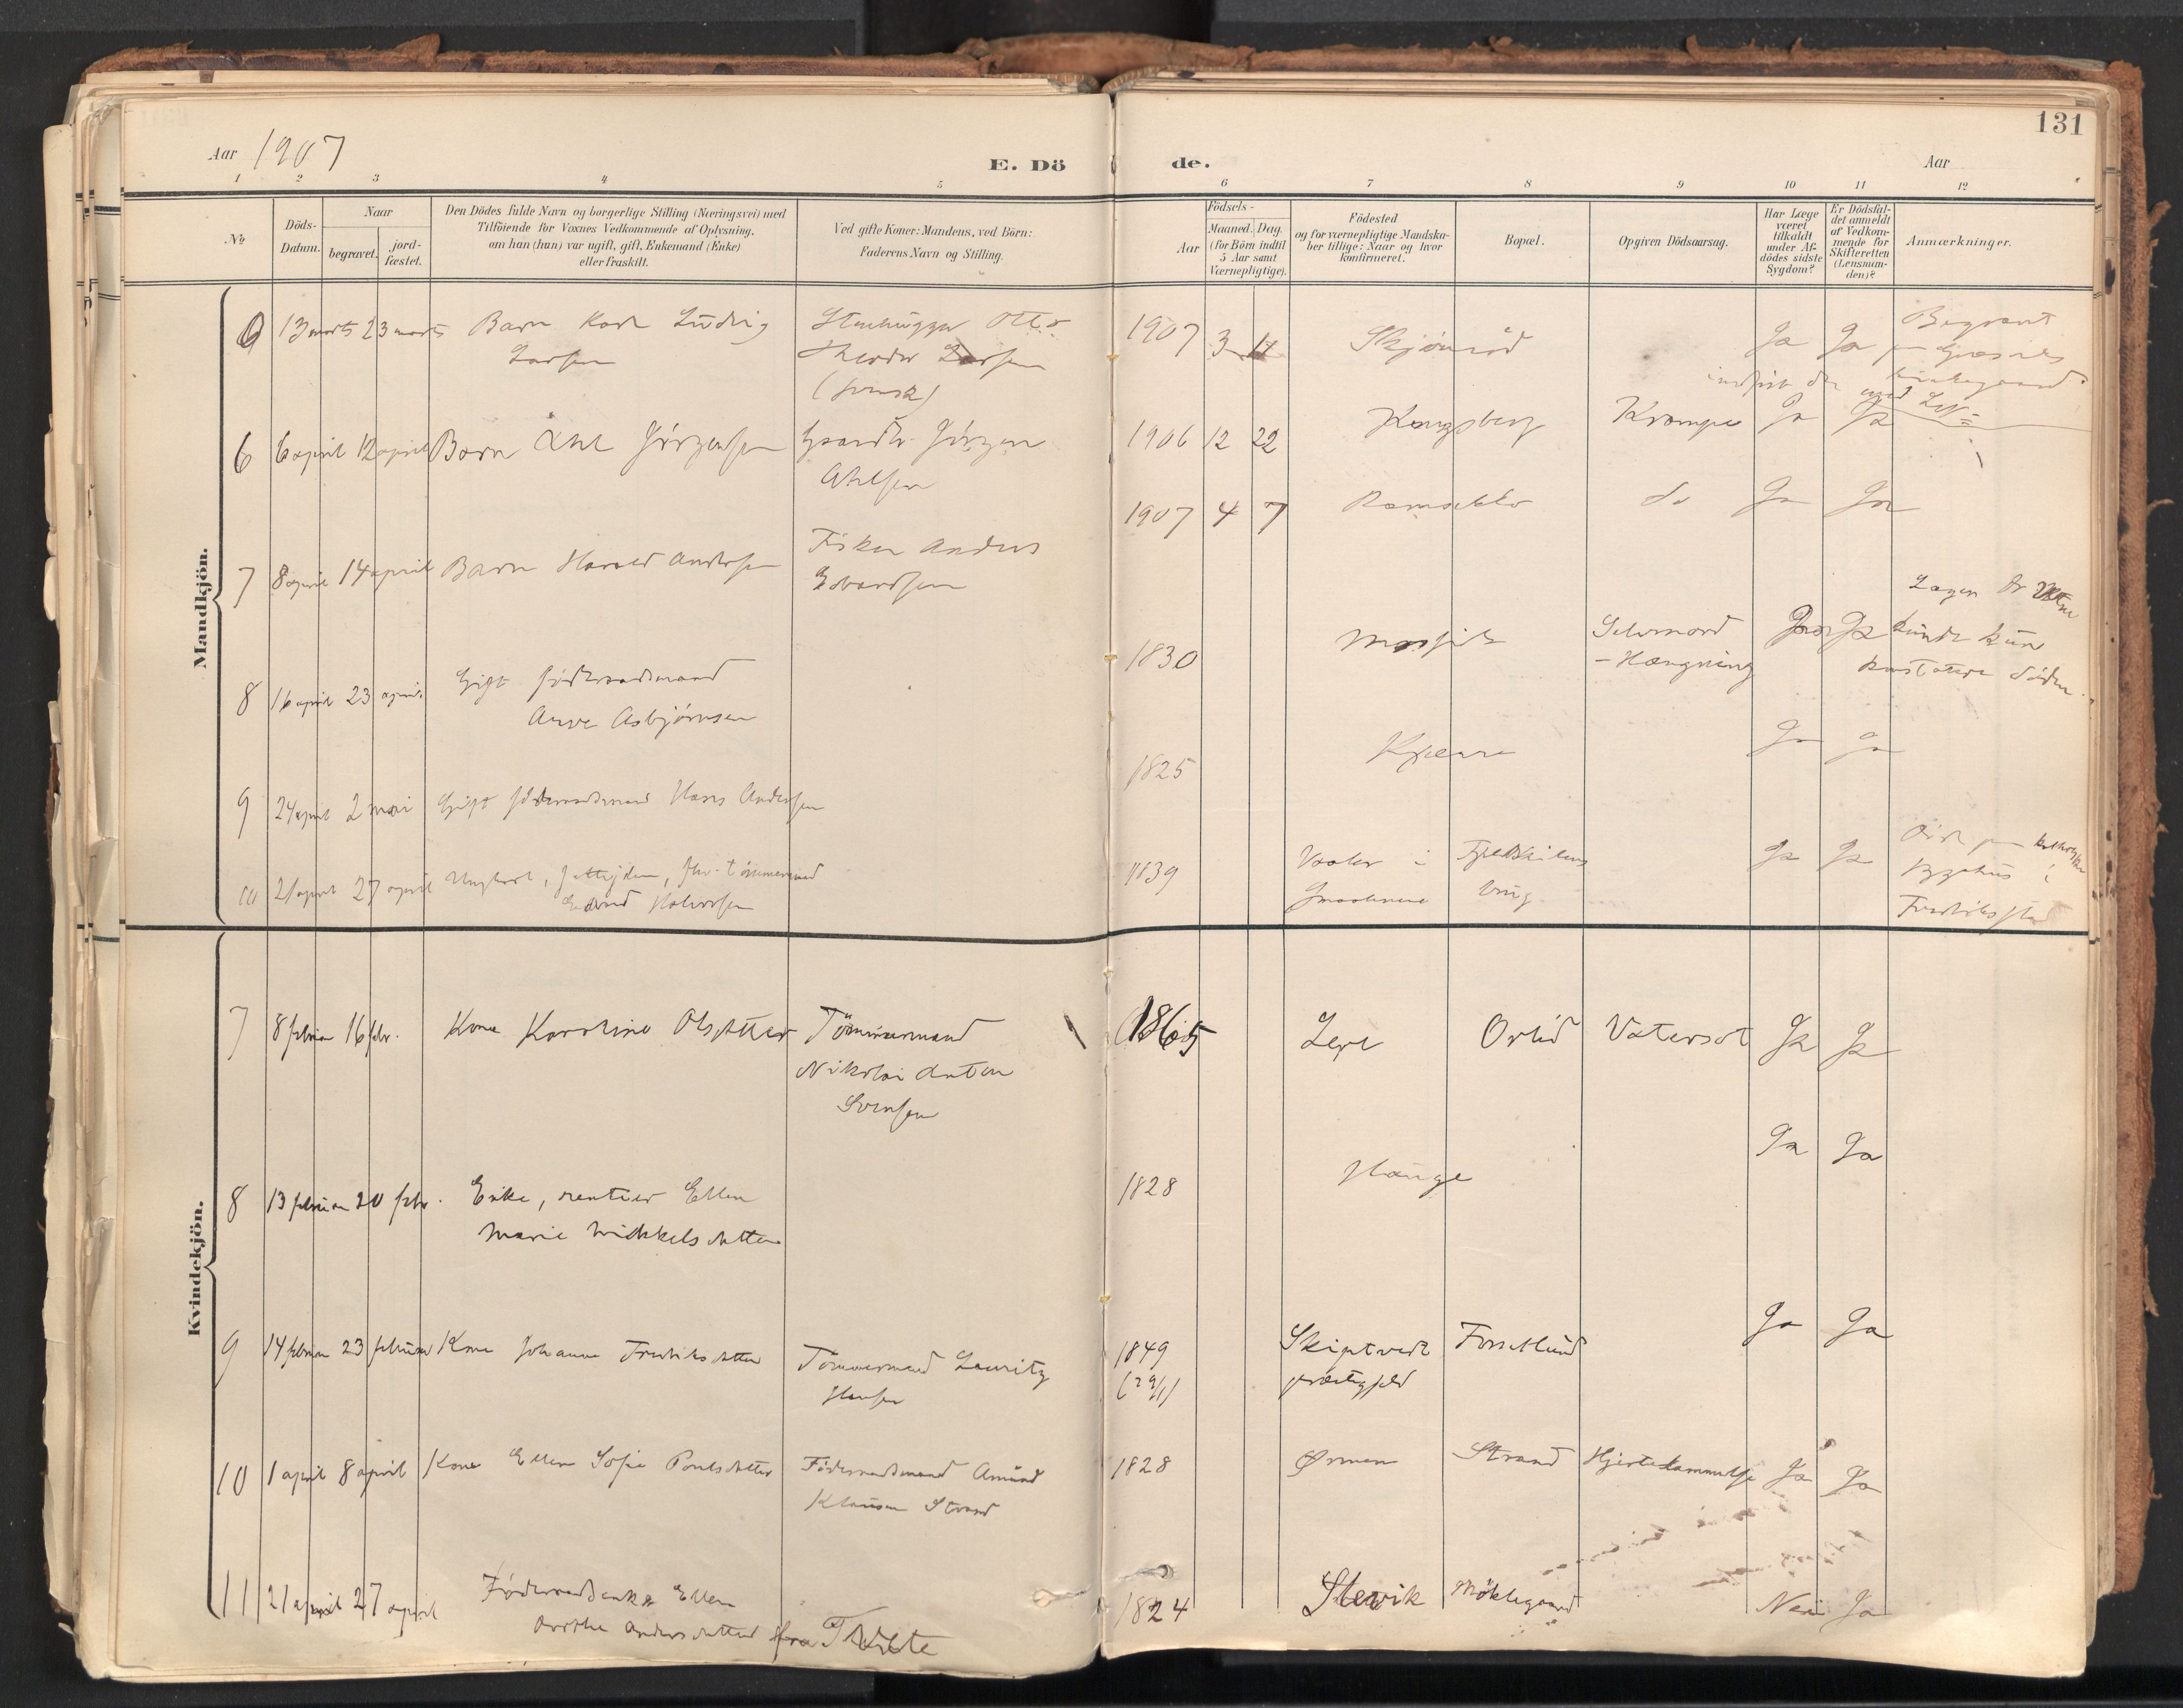 131
Aar 1907
E. Dö de.
Aar
1 2 3 4 5 6 7 8 9 10 11 12
No
Döds-Datum.
Naar
begravet.
jord-fæstet.
Den Dödes fulde Navn og borgerlige Stilling (Næringsvei) med
Tilföiende for Voxnes Vedkommende af Oplysning,
om han (hun) var ugift, gift, Enkemand (Enke)
eller fraskilt.
Ved gifte Koner: Mandens, ved Börn:
Faderens Navn og Stilling.
Födsels-
Aar
Maaned. Dag.
(for Börn indtil
5 Aar samt
Værnepligtige).
Födested
og for værnepligtige Mandska-
ber tillige: Naar og hvor
konfirmeret.
Bopæl.
Opgiven Dödsaarsag.
Har Læge
været
tilkaldt
under Af-
dödes sidste
Sygdom?
Er Dödsfal-
det anmeldt
af Vedkom-
mende for
Skifteretten
(Lensman-
den)?
Anmærkninger.
Mandkjön.
13 marts 23 marts Barn Karl Ludvig
Larsen
Stenhugger Otto
Theodor Larsen
(svensk)
1907 3 11 Ja Ja
Begravet
6 6 april 12 april Barn Axel Jörgensen
Jörgen
Axelsen
1906 12 22 Kongsberg Krampe Ja Ja
7 8 april 14 april Barn Harald Andersen
Fisker Anders
Edvardsen
1907 4 7 do Ja Ja
8 16 april 23 april Gift föderaadsmand
Anve Asbjörnsen
1830 Selvmord
- Hængning
Ja
Lægen Dr
kunde kun
konstatere döden
9 24 april 2 mai Gift föderaadsmand Hans Andersen
1825 Kjære Ja Ja
10 21 april 27 april Ungkarl,
Edvard Halvorsen
1839 Vaaler i
Smaalenene
Ja Ja
sygehus i
Fredriksstad
Kvindekjön.
7 8 februar 16 febr. Kone Karoline Olsdatter
Tömmermand
Nikolai Anton
Svensen
1865 Lere Orlid Vatersot Ja Ja
8 13 februar 20 febr. Enke, rentier Ellen
Marie Mikkelsdatter
1828 Hauge Ja Ja
9 14 februar 23 februar Kone Johanne Fredriksdatter
Tömmermand Lauritz
Hansen
1849
(29/1)
Skiptvedt
præstegjeld
Forsetlund Ja Ja
10 1 april 8 april Kone Ellen Sofie Poulsdatter
Föderaadsmand Amund
Klausen Strand
1828 Ørmen Strand Hjertelammelse Ja Ja
11 21 april 27 april Föderaadsenke Ellen
Dorthe Andersdatter fra Thofte
1824 Slevik Möklegaard Nei Ja